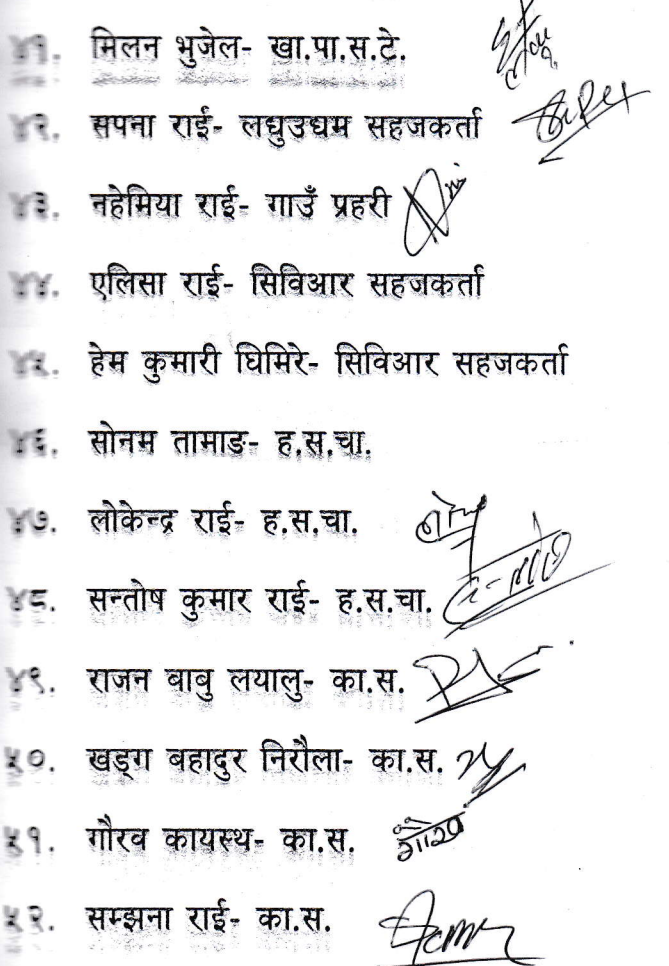 ४१. मिलन भुजेल- खा.पा.स.टे.
४२. सपना राई- लघुउधम सहजकर्ता
४३. नहेमिया राई- गाउँ प्रहरी
४४. एलिसा राई- सिविआर सहजकर्ता
४५. हेम कुमारी घिमिरे- सिविआर सहजकर्ता
४६. सोनम तामाङ- ह.स.चा.
४७. लोकेन्द्र राई- ह.स.चा.
४८. सन्तोष कुमार राई- ह.स.चा.
४९. राजन बाबु लयालु- का.स.
५०. खड्ग बहादुर निरौला- का.स.
५१. गौरव कायस्थ- का.स.
५२. सम्झना राई- का.स.